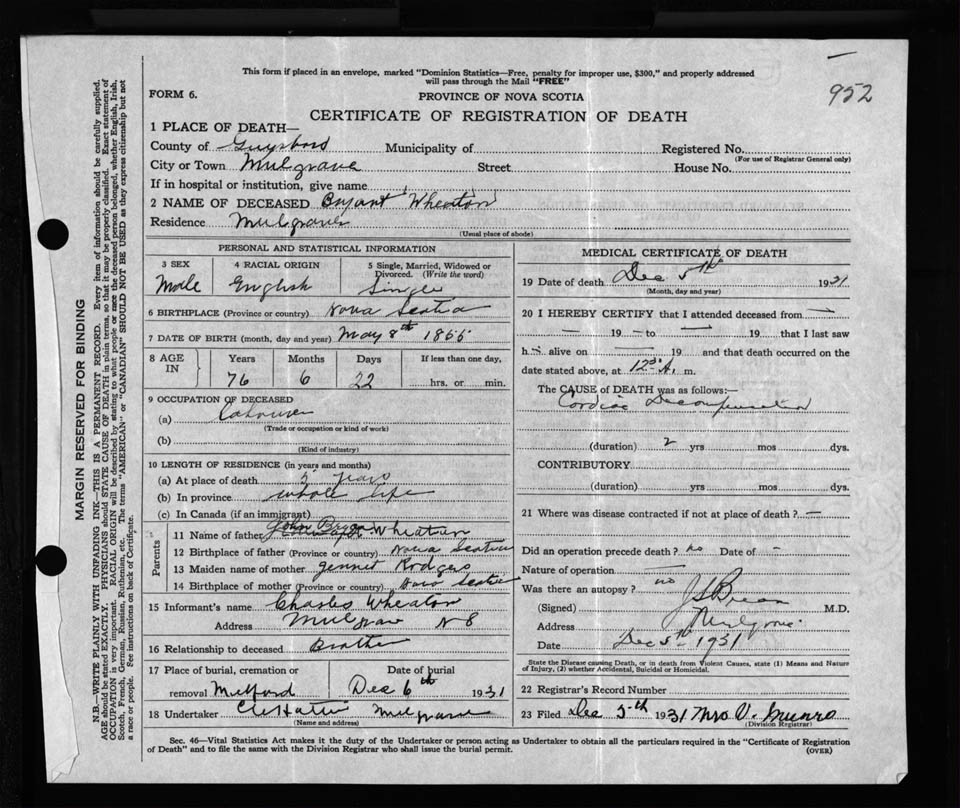 This form if placed in an envelope, marked "Dominion Statistics—Free, penalty for improper use, $300," and properly addressed
will pass through the Mail "FREE"
952
FORM 6.
PROVINCE OF NOVA SCOTIA
CERTIFICATE OF REGISTRATION OF DEATH
1 PLACE OF DEATH—
County of Guysboro Municipality of Registered No.
(For use of Registrar General only)
City or Town Mulgrave Street House No.
If in hospital or institution, give name
2 NAME OF DECEASED Bryant Wheaton
Residence Mulgrave
(Usual place of abode)
PERSONAL AND STATISTICAL INFORMATION
3 SEX 4 RACIAL ORIGIN 5 Single, Married, Widowed or Divorced. (Write the word)
Male English Single
6 BIRTHPLACE (Province or country) Nova Scotia
7 DATE OF BIRTH (month, day and year) May 8th 1855
8 AGE IN Years Months Days If less than one day,
76 6 22 hrs. or min.
9 OCCUPATION OF DECEASED
(a) Labourer
(Trade or occupation or kind of work)
(b)
(Kind of industry)
10 LENGTH OF RESIDENCE (in years and months)
(a) At place of death 5 years
(b) In province whole life
(c) In Canada (if an immigrant)
Parents
11 Name of father John Wheaton
12 Birthplace of father (Province or country) Nova Scotia
13 Maiden name of mother Jennet Rodgers
14 Birthplace of mother (Province or country) Nova Scotia
15 Informant's name Charles Wheaton
Address Mulgrave N S
16 Relationship to deceased Brother
17 Place of burial, cremation or removal Milford Date of burial Dec 6th 1931
18 Undertaker Mulgrave
(Name and address)
MEDICAL CERTIFICATE OF DEATH
19 Date of death Dec 5th 1931
(Month, day and year)
20 I HEREBY CERTIFY that I attended deceased from —
— 19 — to — 19 that I last saw
h — alive on — 19 and that death occurred on the
date stated above, at 12 30 A. m.
The CAUSE of DEATH was as follows:—
Cardiac Decompensation
(duration) 2 yrs mos dys.
CONTRIBUTORY
(duration) yrs mos dys.
21 Where was disease contracted if not at place of death? —
Did an operation precede death? no Date of —
Nature of operation —
Was there an autopsy? no
(Signed) M.D.
Address Mulgrave
Date Dec 5th 1931
State the Disease causing Death, or in death from Violent Causes, state (1) Means and Nature
of Injury, (2) whether Accidental, Suicidal or Homicidal.
22 Registrar's Record Number
23 Filed Dec 5th 1931 Mrs V. Munro
(Division Registrar)
Sec. 46—Vital Statistics Act makes it the duty of the Undertaker or person acting as Undertaker to obtain all the particulars required in the "Certificate of Registration
of Death" and to file the same with the Division Registrar who shall issue the burial permit.
(OVER)
MARGIN RESERVED FOR BINDING
N.B.—WRITE PLAINLY WITH UNFADING INK—THIS IS A PERMANENT RECORD. Every item of information should be carefully supplied.
AGE should be stated EXACTLY. PHYSICIANS should STATE CAUSE OF DEATH in plain terms, so that it may be properly classified. Exact statement of
OCCUPATION is very important. RACIAL ORIGIN will be described by stating to what people or race the deceased person belonged, whether English, Irish,
Scotch, French, German, Russian, Ruthenian, etc. The terms "AMERICAN" or "CANADIAN" SHOULD NOT BE USED as they express citizenship but not
a race or people. See instructions on back of Certificate.